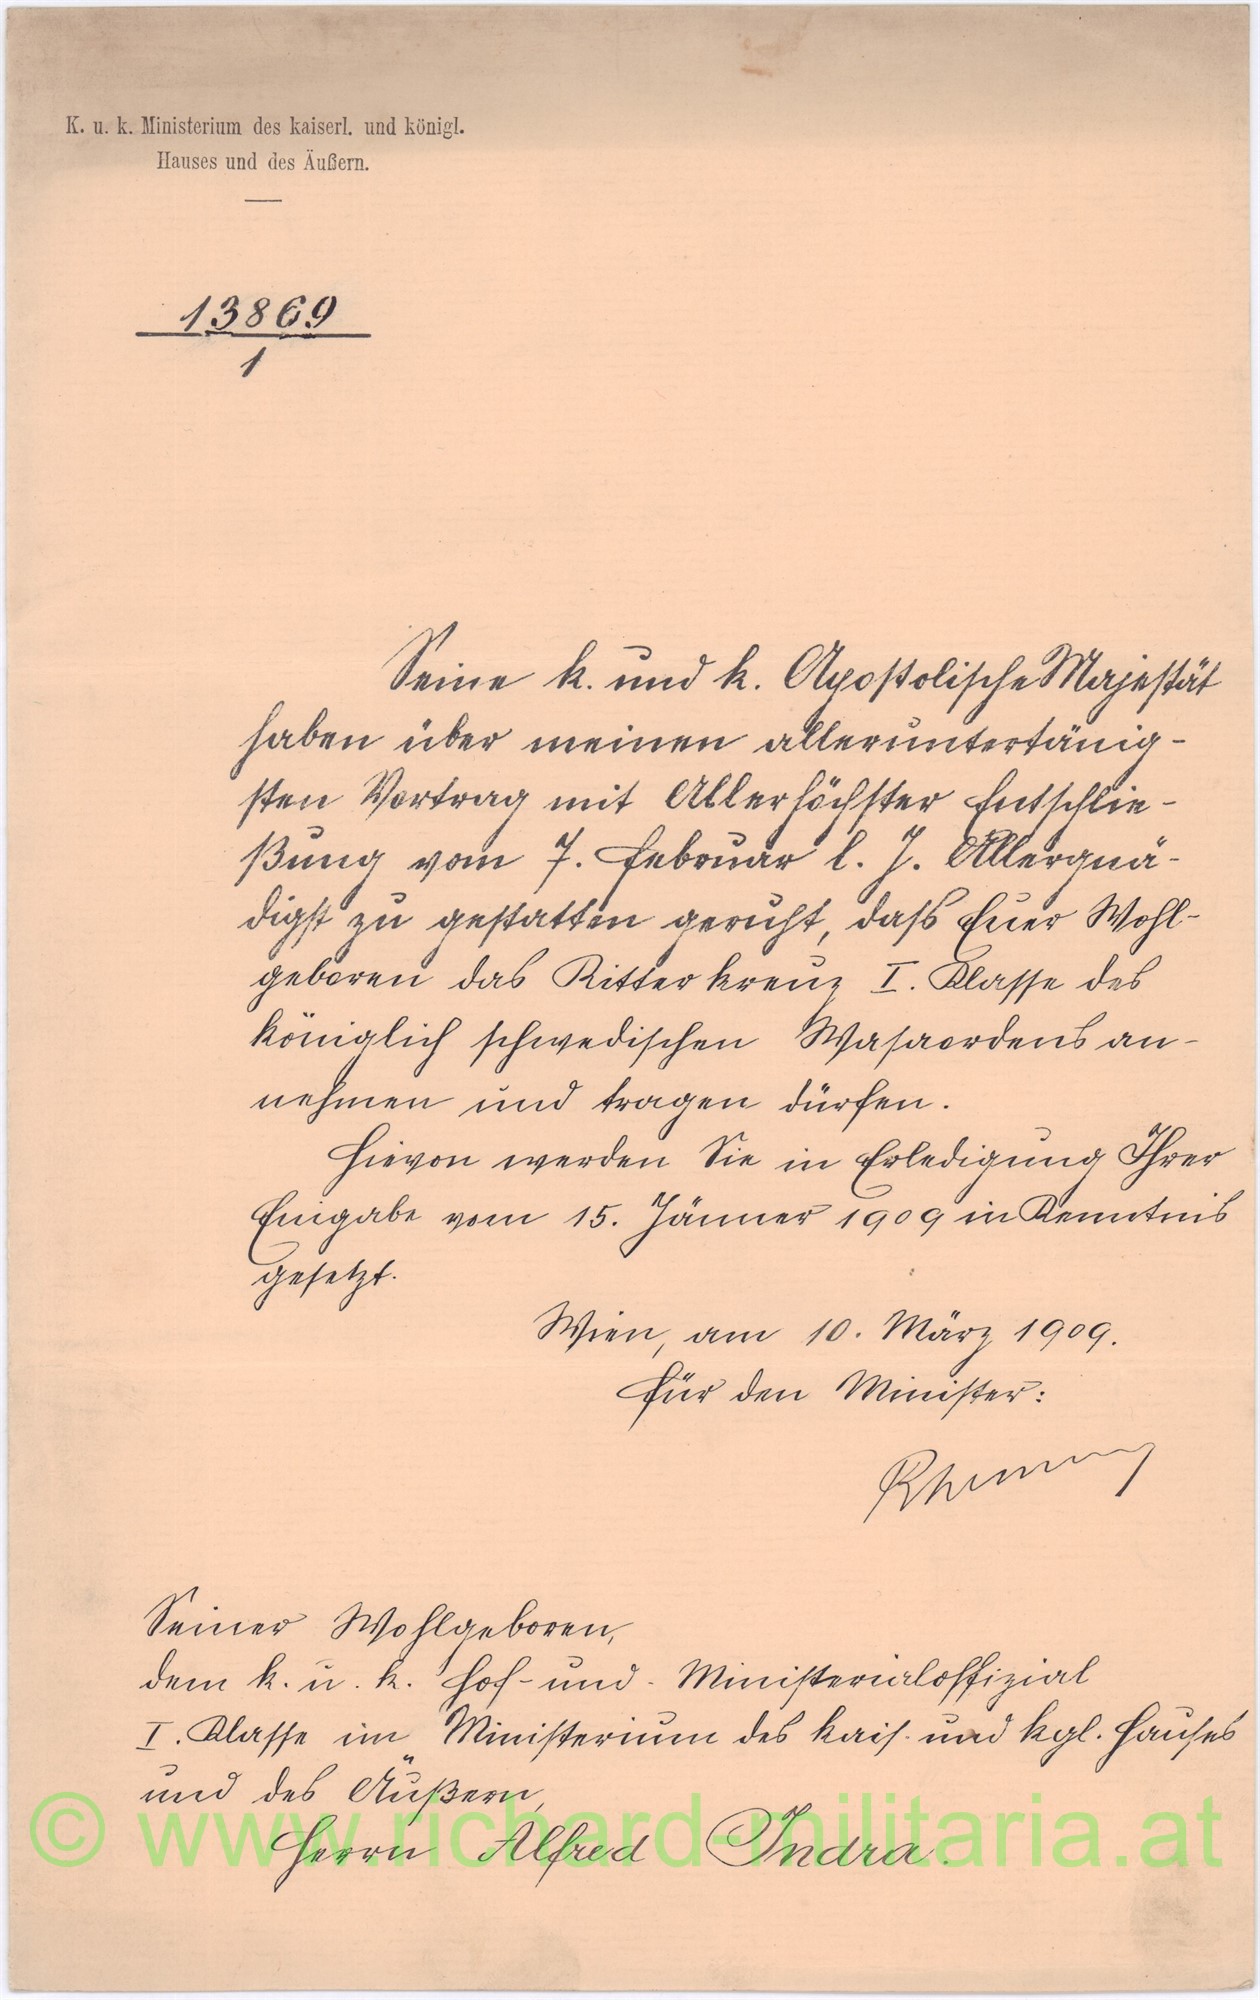 K. u. k. Ministerium des kaiserl. und königl.
Hauses und des Äußern.
13869
1
Seine k. und k. Apostolische Majestät
haben über meinen alleruntertänig-
sten Vortrag mit Allerhöchster Entschlie-
ßung vom 7. Februar l. J. Allergnä-
digst zu gestatten geruht, dass Euer Wohl-
geboren das Ritterkreuz I. Klasse des
königlich schwedischen Wasaordens an-
nehmen und tragen dürfen.
Hievon werden Sie in Erledigung Ihrer
Eingabe vom 15. Jänner 1909 in Kenntnis
gesetzt.
Wien, am 10. März 1909.
Für den Minister:
Seiner Wohlgeboren,
dem k. u. k. Hof- und Ministerialoffizial
I. Klasse im Ministerium des kais. und kgl. Hauses
und des Äußern,
Herrn Alfred Indra.
© www.richard-militaria.at